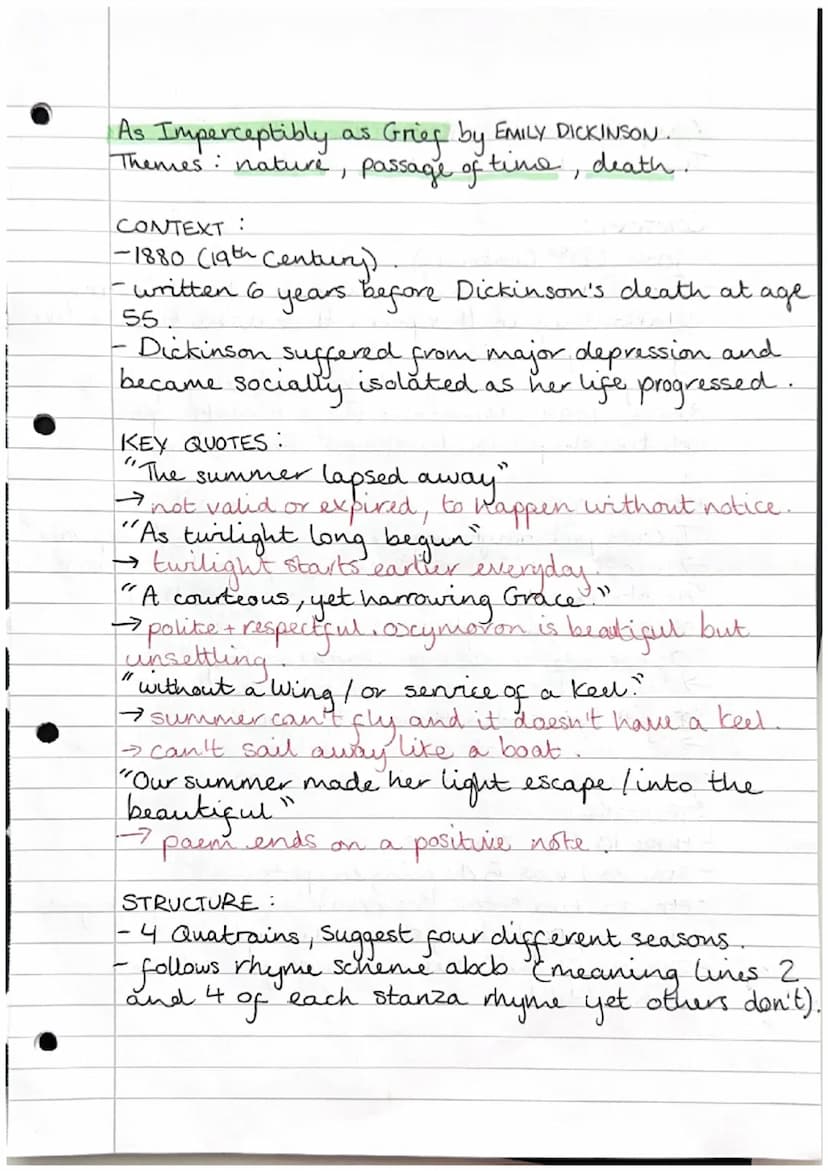 As Imperceptibly as Grief by EMILY DICKINSON.
Themes: nature, passage of time, death.
CONTEXT:
-1880 (19th Century).
-written 6 years before Dickinson's death at age
55.
- Dickinson suffered from major depression and
became socially isolated as her life progressed.
KEY QUOTES:
"The summer lapsed away"
→ not valid or expired, to happen without notice.
"As twilight long begun"
→ twilight starts earlier everyday.
"A courteous, yet harrowing Grace."
→ polite + respectful. oxymoron is beautiful but
unsettling.
"without a Wing / or service of a Keel."
→ summer can't fly and it doesn't have a keel.
→ can't sail away like a boat.
"Our summer made her light escape / into the
beautiful"
→ poem ends on a positive note.
STRUCTURE:
- 4 Quatrains, Suggest four different seasons.
- follows rhyme scheme abcb (meaning lines 2
and 4 of each stanza rhyme yet others don't).